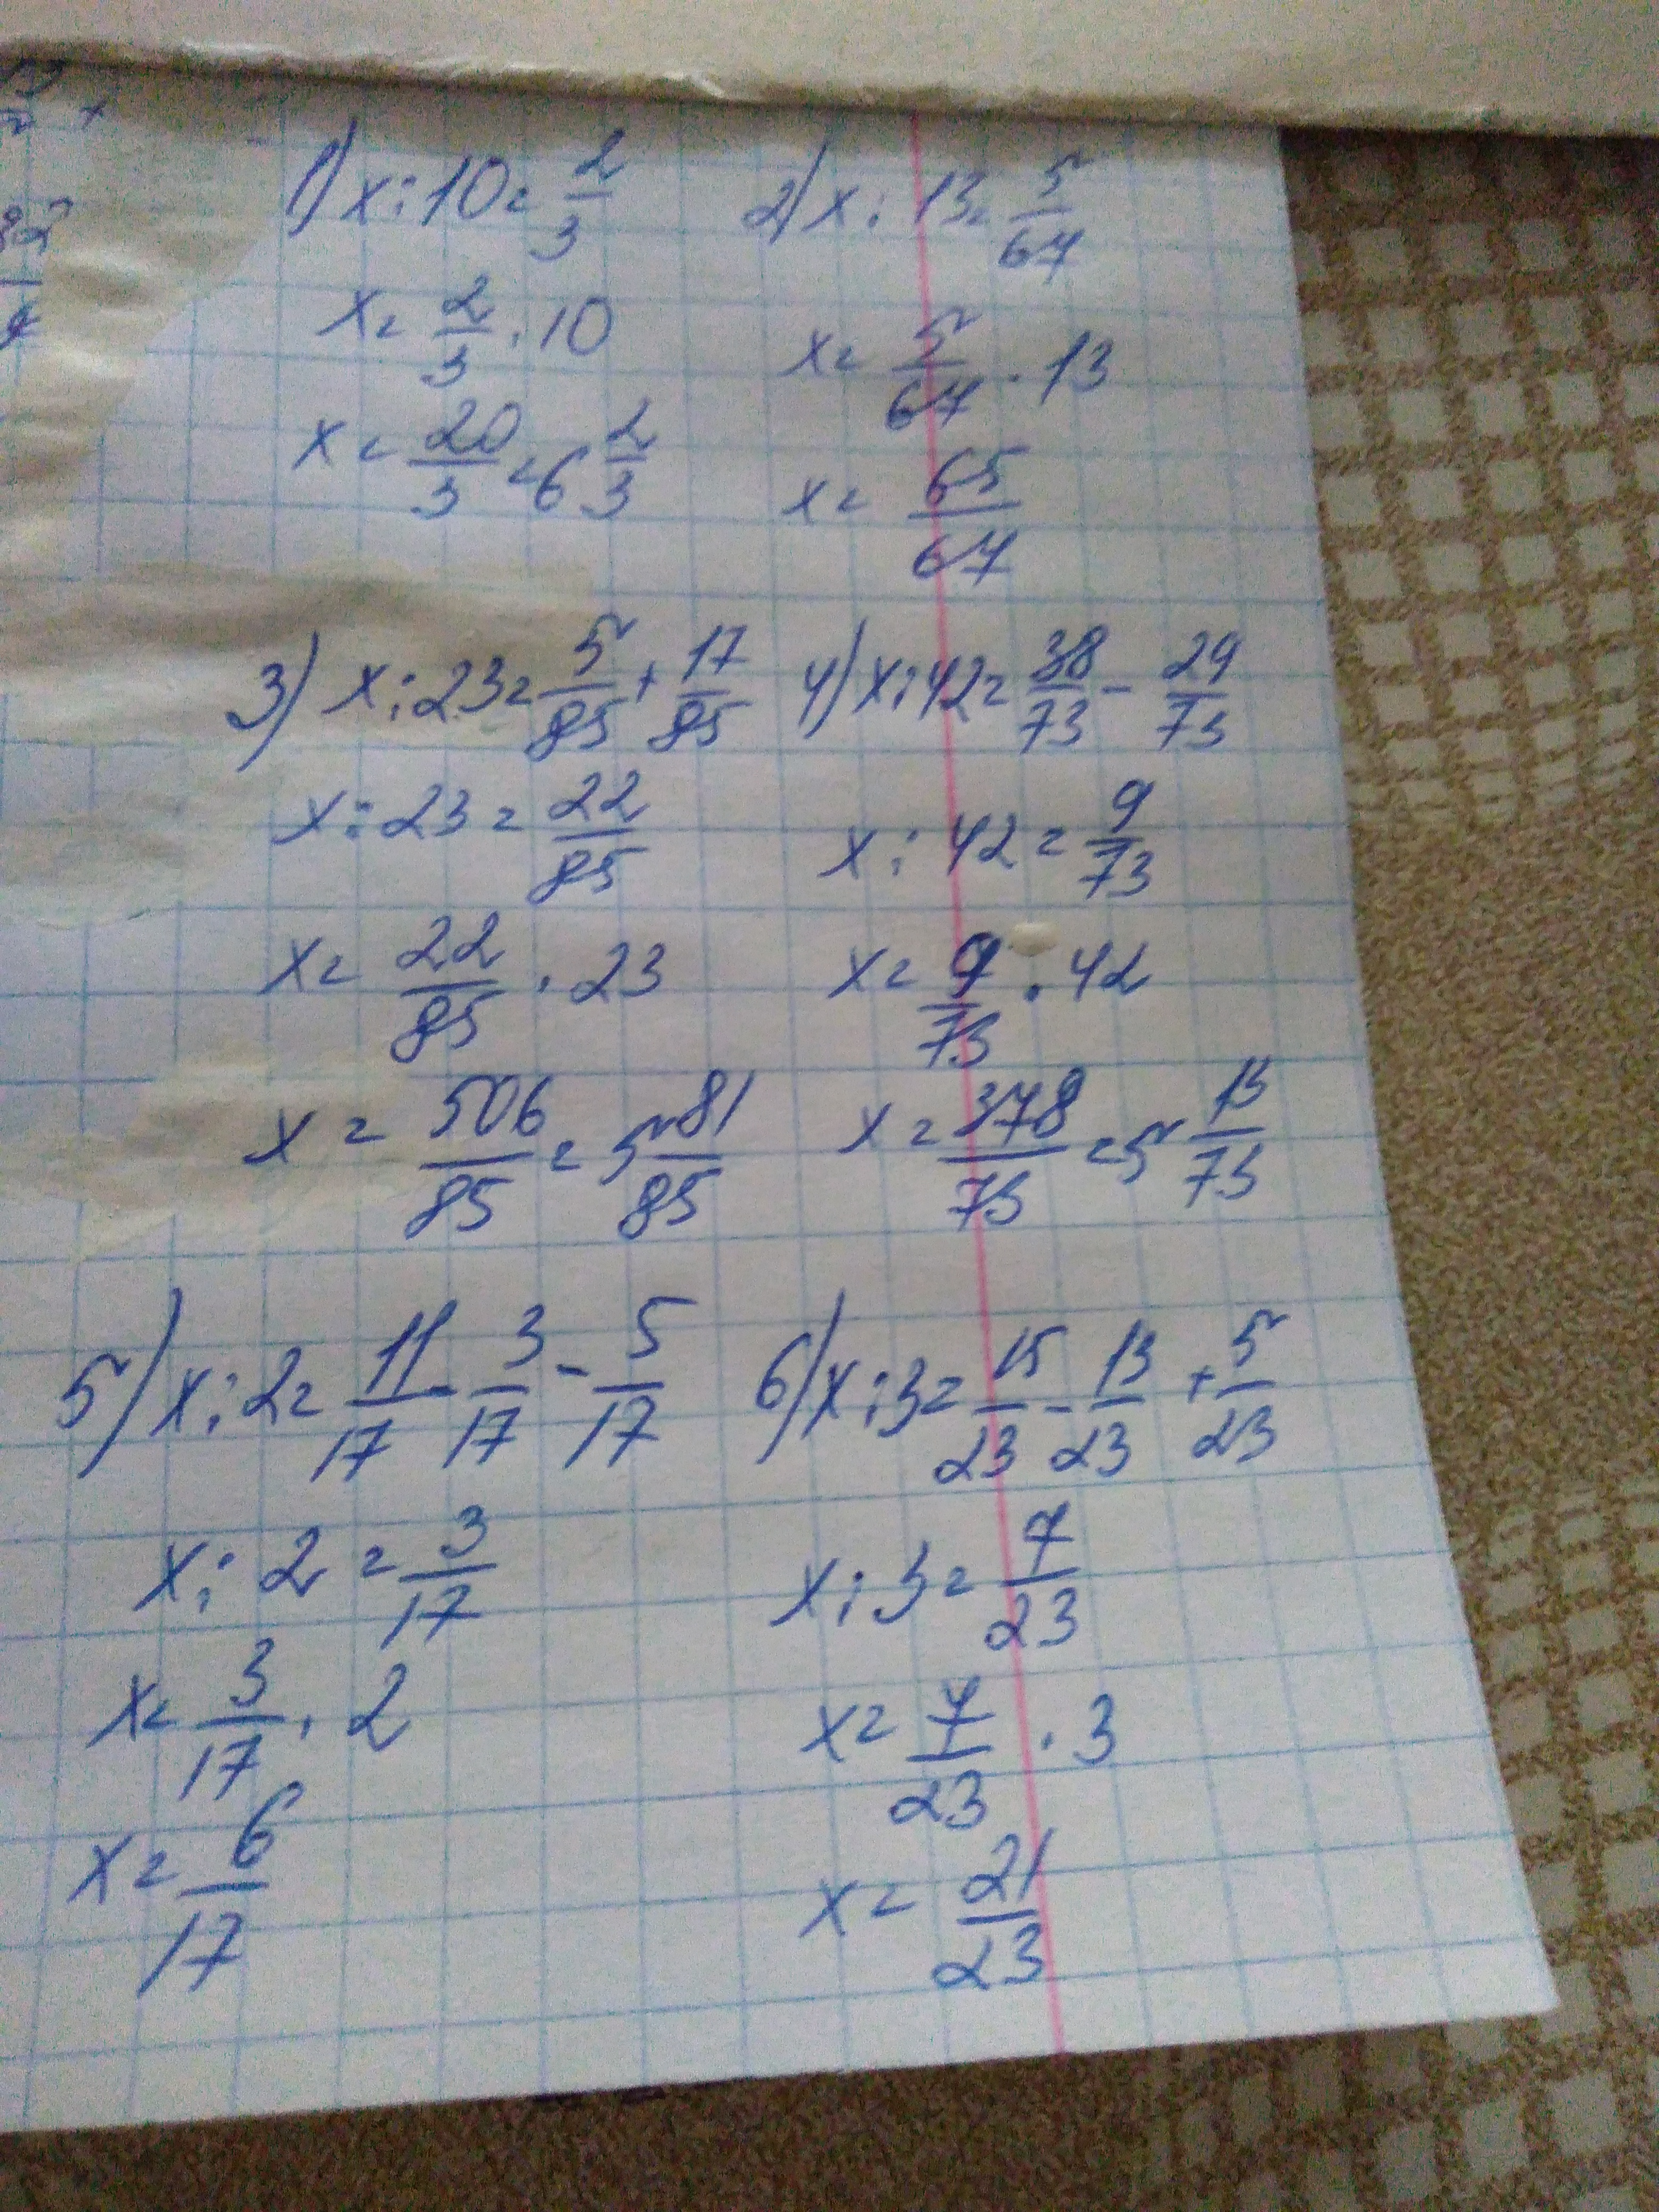 1) x:10=2/3
x=2/3·10
x=20/3=6 2/3
2) x:13=5/67
x=5/67·13
x=65/67
3) x:23=5/85+17/85
x:23=22/85
x=22/85·23
x=506/85=5 81/85
4) x:42=38/73-29/73
x:42=9/73
x=9/73·42
x=378/73=5 13/73
5) x:2=11/17-3/17-5/17
x:2=3/17
x=3/17·2
x=6/17
6) x:3=15/23-13/23+5/23
x:3=7/23
x=7/23·3
x=21/23